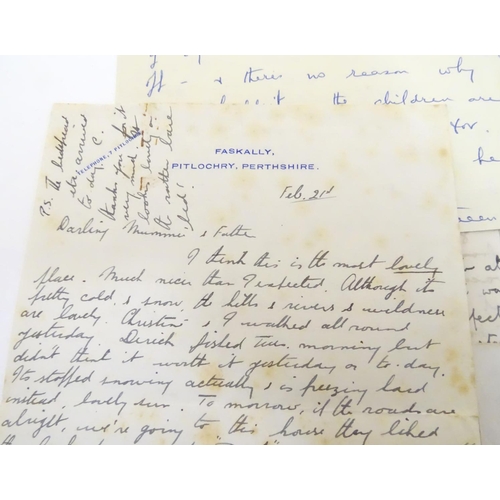 FASKALLY,
PITLOCHRY, PERTHSHIRE.
TELEPHONE, 3 PITLOCHRY
Feb. 21st
P.S. The bedspread
has arrived
to day. C.
thanks you for it
very much
looking
a rather bare
bed!
Darling Mummie & Father
I think this is the most lovely
place. Much nicer than I expected. Although its
pretty cold & snow, the hills & rivers & wildness
are lovely. Christin & I walked all round
yesterday. Derick fished tues. morning but
didn't think it worth it yesterday or to-day.
Its stopped snowing actually & is freezing hard
instead, lovely sun. To morrow, if the roads are
alright, we're going to this house they liked
If - & theres no reason why
the children are
for.
he